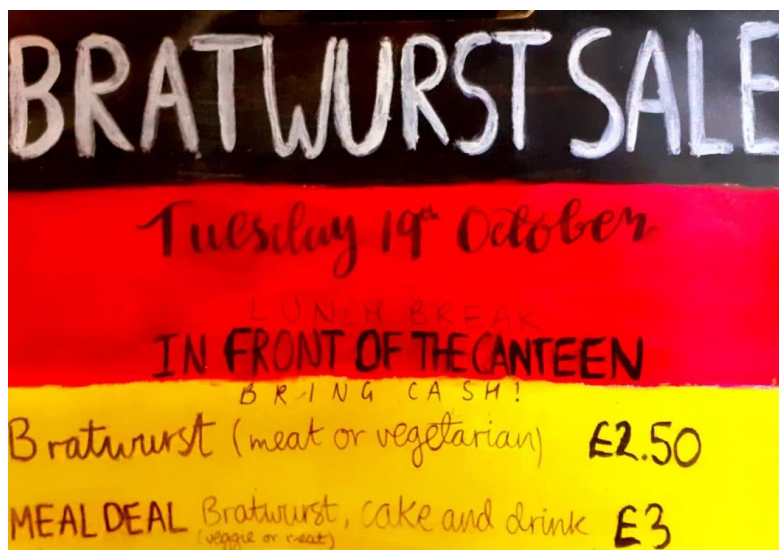 BRATWURST SALE
Tuesday 19th October
LUNCH BREAK
IN FRONT OF THE CANTEEN
BRING CASH!
Bratwurst (meat or vegetarian) £2.50
MEAL DEAL Bratwurst, cake and drink £3
(veggie or meat)